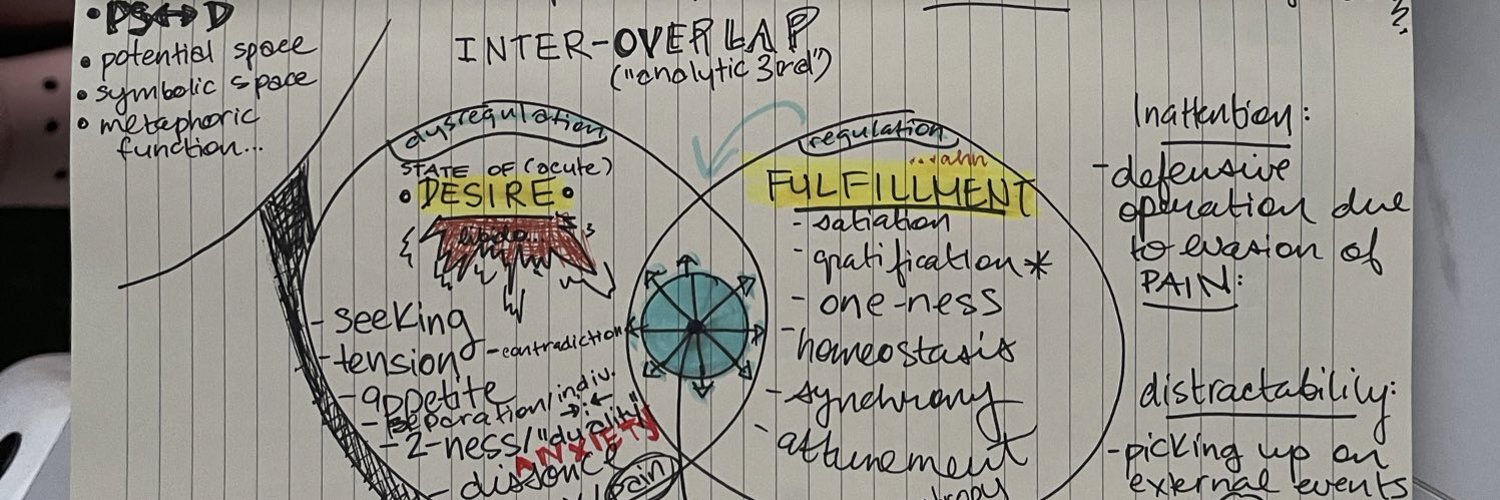 • PS↔D
• potential space
• symbolic space
• metaphoric
function...
INTER-OVERLAP
("analytic 3rd")
dysregulation
STATE OF (acute)
• DESIRE •
libido...
- seeking
- tension - contradiction
- appetite
- separation/indiv.
- 2-ness/"duality"
ANXIETY
- dissonance
pain
regulation
...ahh
FULFILLMENT
- satiation
- gratification *
- one-ness
- homeostasis
- synchrony
- attunement
Inattention:
- defensive
operation due
to evasion of
PAIN:
distractability:
- picking up on
external events
?